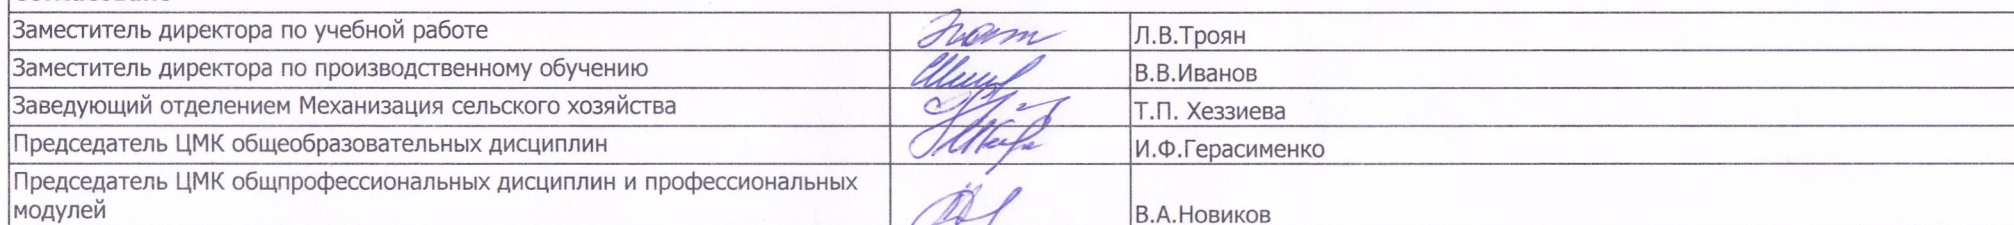 Заместитель директора по учебной работе Л.В.Троян
Заместитель директора по производственному обучению В.В.Иванов
Заведующий отделением Механизация сельского хозяйства Т.П. Хеззиева
Председатель ЦМК общеобразовательных дисциплин И.Ф.Герасименко
Председатель ЦМК общпрофессиональных дисциплин и профессиональных
модулей В.А.Новиков